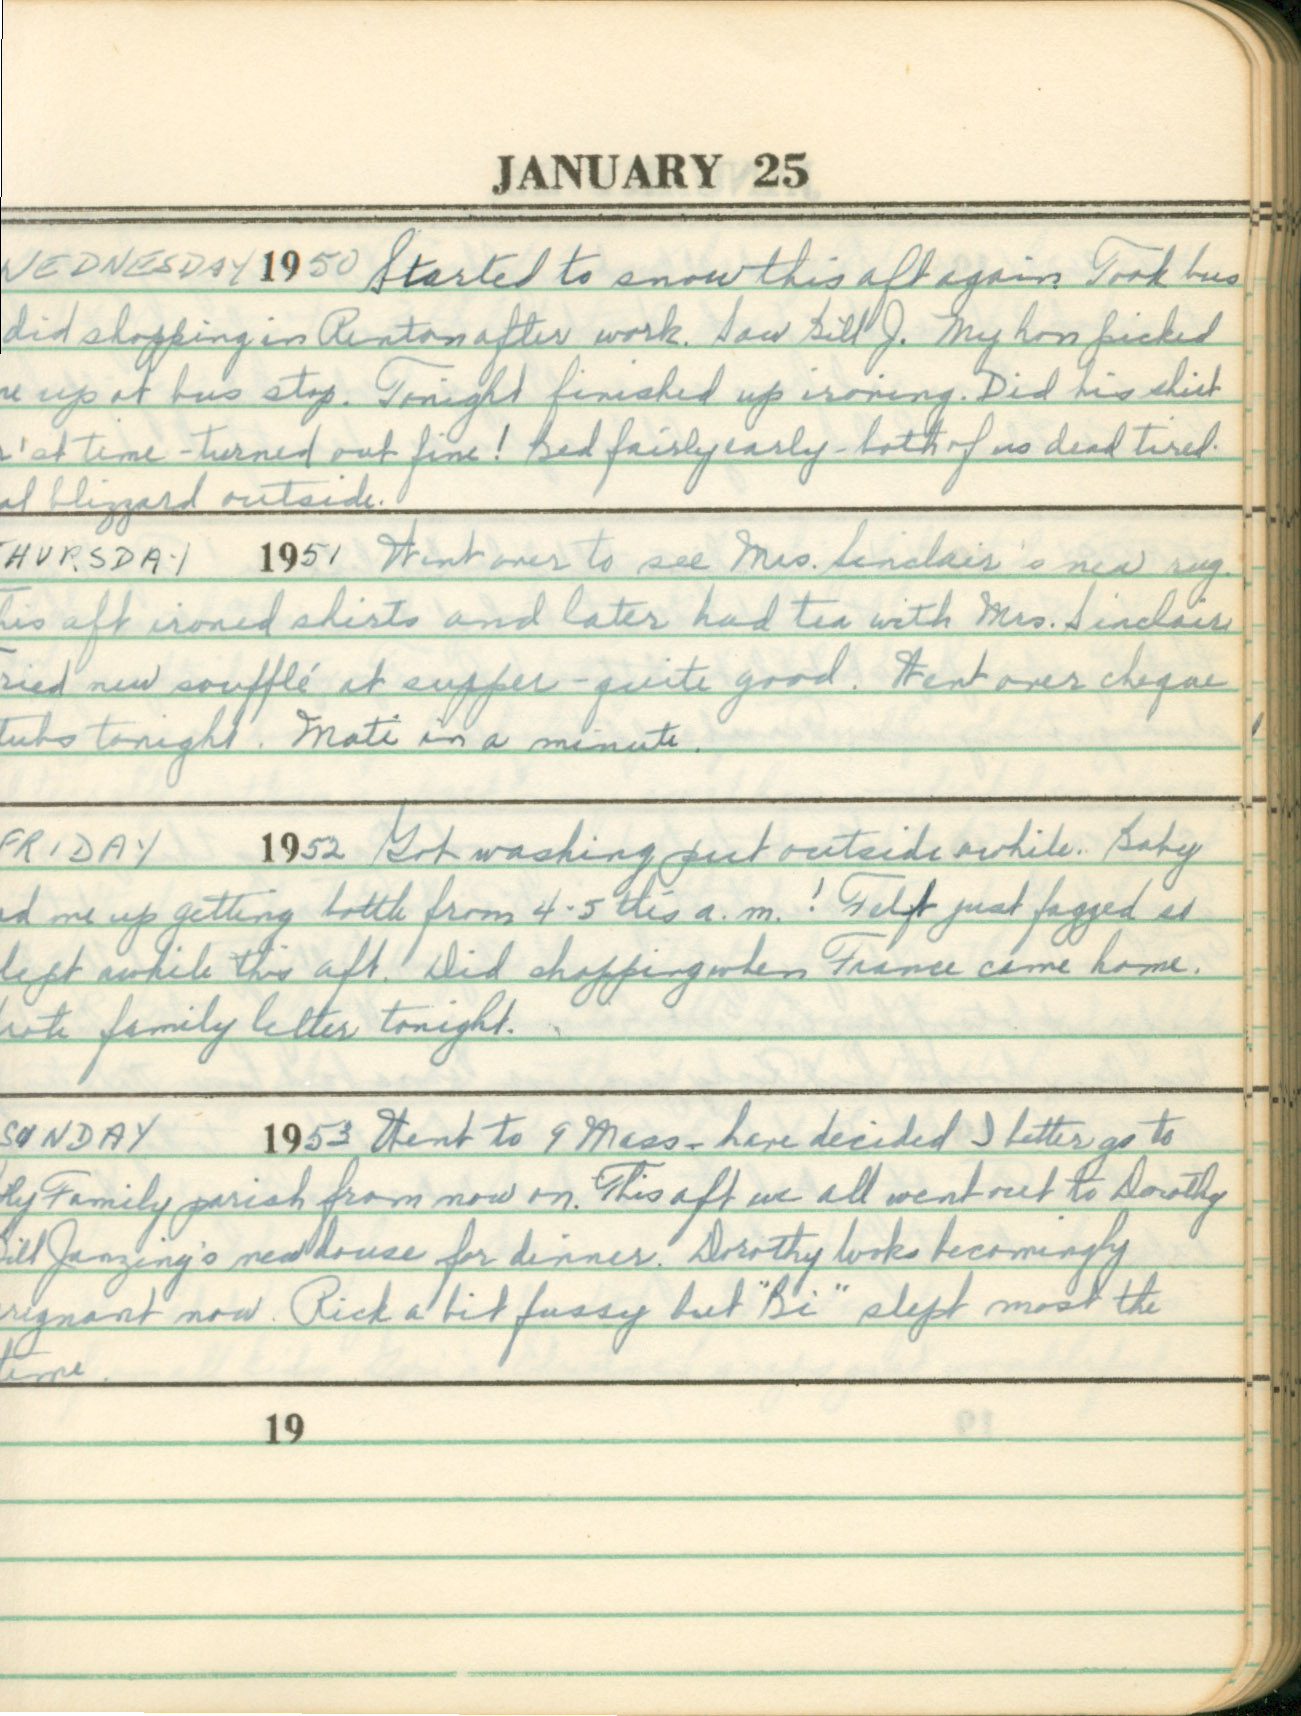 JANUARY 25
WEDNESDAY 1950 Started to snow this aft again. Took bus
did shopping in Renton after work. Saw Bill J. My hon picked
me up at bus stop. Tonight finished up ironing. Did his shirt
r'st time - turned out fine! Bed fairly early - both of us dead tired.
al blizzard outside.
THURSDAY 1951 Went over to see Mrs. Sinclair's new rug.
his aft ironed shirts and later had tea with Mrs. Sinclair
ried new soufflé at supper - quite good. Went over cheque
tubs tonight. Mati in a minute.
FRIDAY 1952 Got washing put outside awhile. Baby
ad me up getting bottle from 4-5 this a.m.! Felt just fagged so
lept awhile this aft. Did shopping when France came home.
rote family letter tonight.
SUNDAY 1953 Went to 9 Mass - have decided I better go to
ly Family parish from now on. This aft we all went out to Dorothy
Bill Janzing's new house for dinner. Dorothy looks becomingly
regnant now. Rick a bit fussy but "Bi" slept most the
time.
19